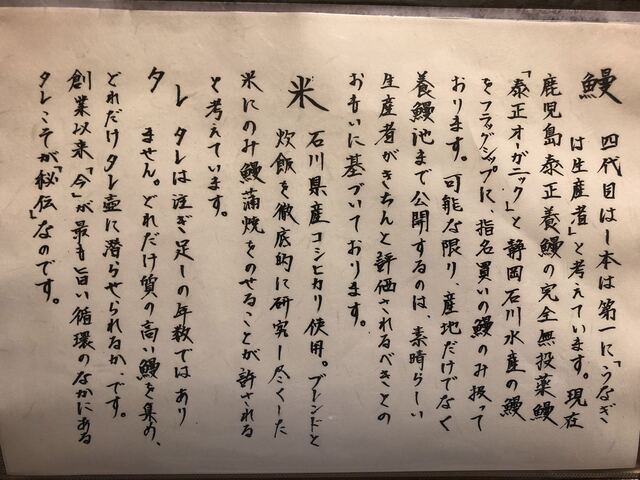 鰻 四代目は一本は第一に「うなぎ
は生産者」と考えています。現在
鹿児島泰正養鰻の完全無投薬鰻
「泰正オーガニック」と静岡石川水産の鰻
をフラッグシップに、指名買いの鰻のみ扱って
おります。可能な限り、産地だけでなく
養鰻池まで公開するのは、素晴らしい
生産者がきちんと評価されるべきとの
お思いに基づいております。
米 石川県産コシヒカリ使用。ブレンドと
炊飯を徹底的に研究し尽くした
米にのみ鰻蒲焼をのせることが許される
と考えています。
タレ タレは注ぎ足しの年数ではあり
ません。どれだけ質の高い鰻を集め、
どれだけタレ壺に潜らせられるか、です。
創業以来「今」が最も旨い循環のなかにある
タレこそが「秘伝」なのです。